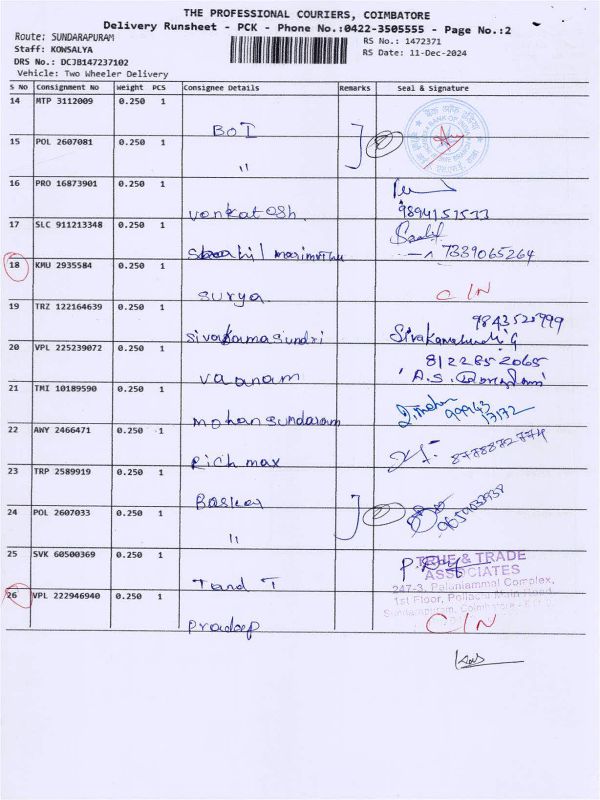 THE PROFESSIONAL COURIERS, COIMBATORE
Delivery Runsheet - PCK - Phone No.:0422-3505555 - Page No.:2
Route: SUNDARAPURAM
RS No.: 1472371
Staff: KONSALYA
RS Date: 11-Dec-2024
DRS No.: DCJB147237102
Vehicle: Two Wheeler Delivery
S No Consignment No Weight PCS Consignee Details Remarks Seal & Signature
14 MTP 3112009 0.250 1
BOI
15 POL 2607081 0.250 1
"
16 PRO 16873901 0.250 1
venkatesh. 9894151533
17 SLC 911213348 0.250 1
marimuthu 7339065264
18 KMU 2935584 0.250 1
surya C/N
19 TRZ 122164639 0.250 1
9843521999
sivakamasundri
20 VPL 225239072 0.250 1
8122852065
vaanam A.S.
21 TMI 10189590 0.250 1
mohansundaram 99943 13172
22 ANY 2466471 0.250 1
Rich max 8778872774
23 TRP 2589919 0.250 1
Baskar
24 POL 2607033 0.250 1
"
25 SVK 60500369 0.250 1
TRUE & TRADE
ASSOCIATES
T and T
247-3, Palaniammal Complex,
1st Floor, Pollachi Main Road,
26 VPL 222946940 0.250 1
Sundarapuram, Coimbatore
Pradeep C/N